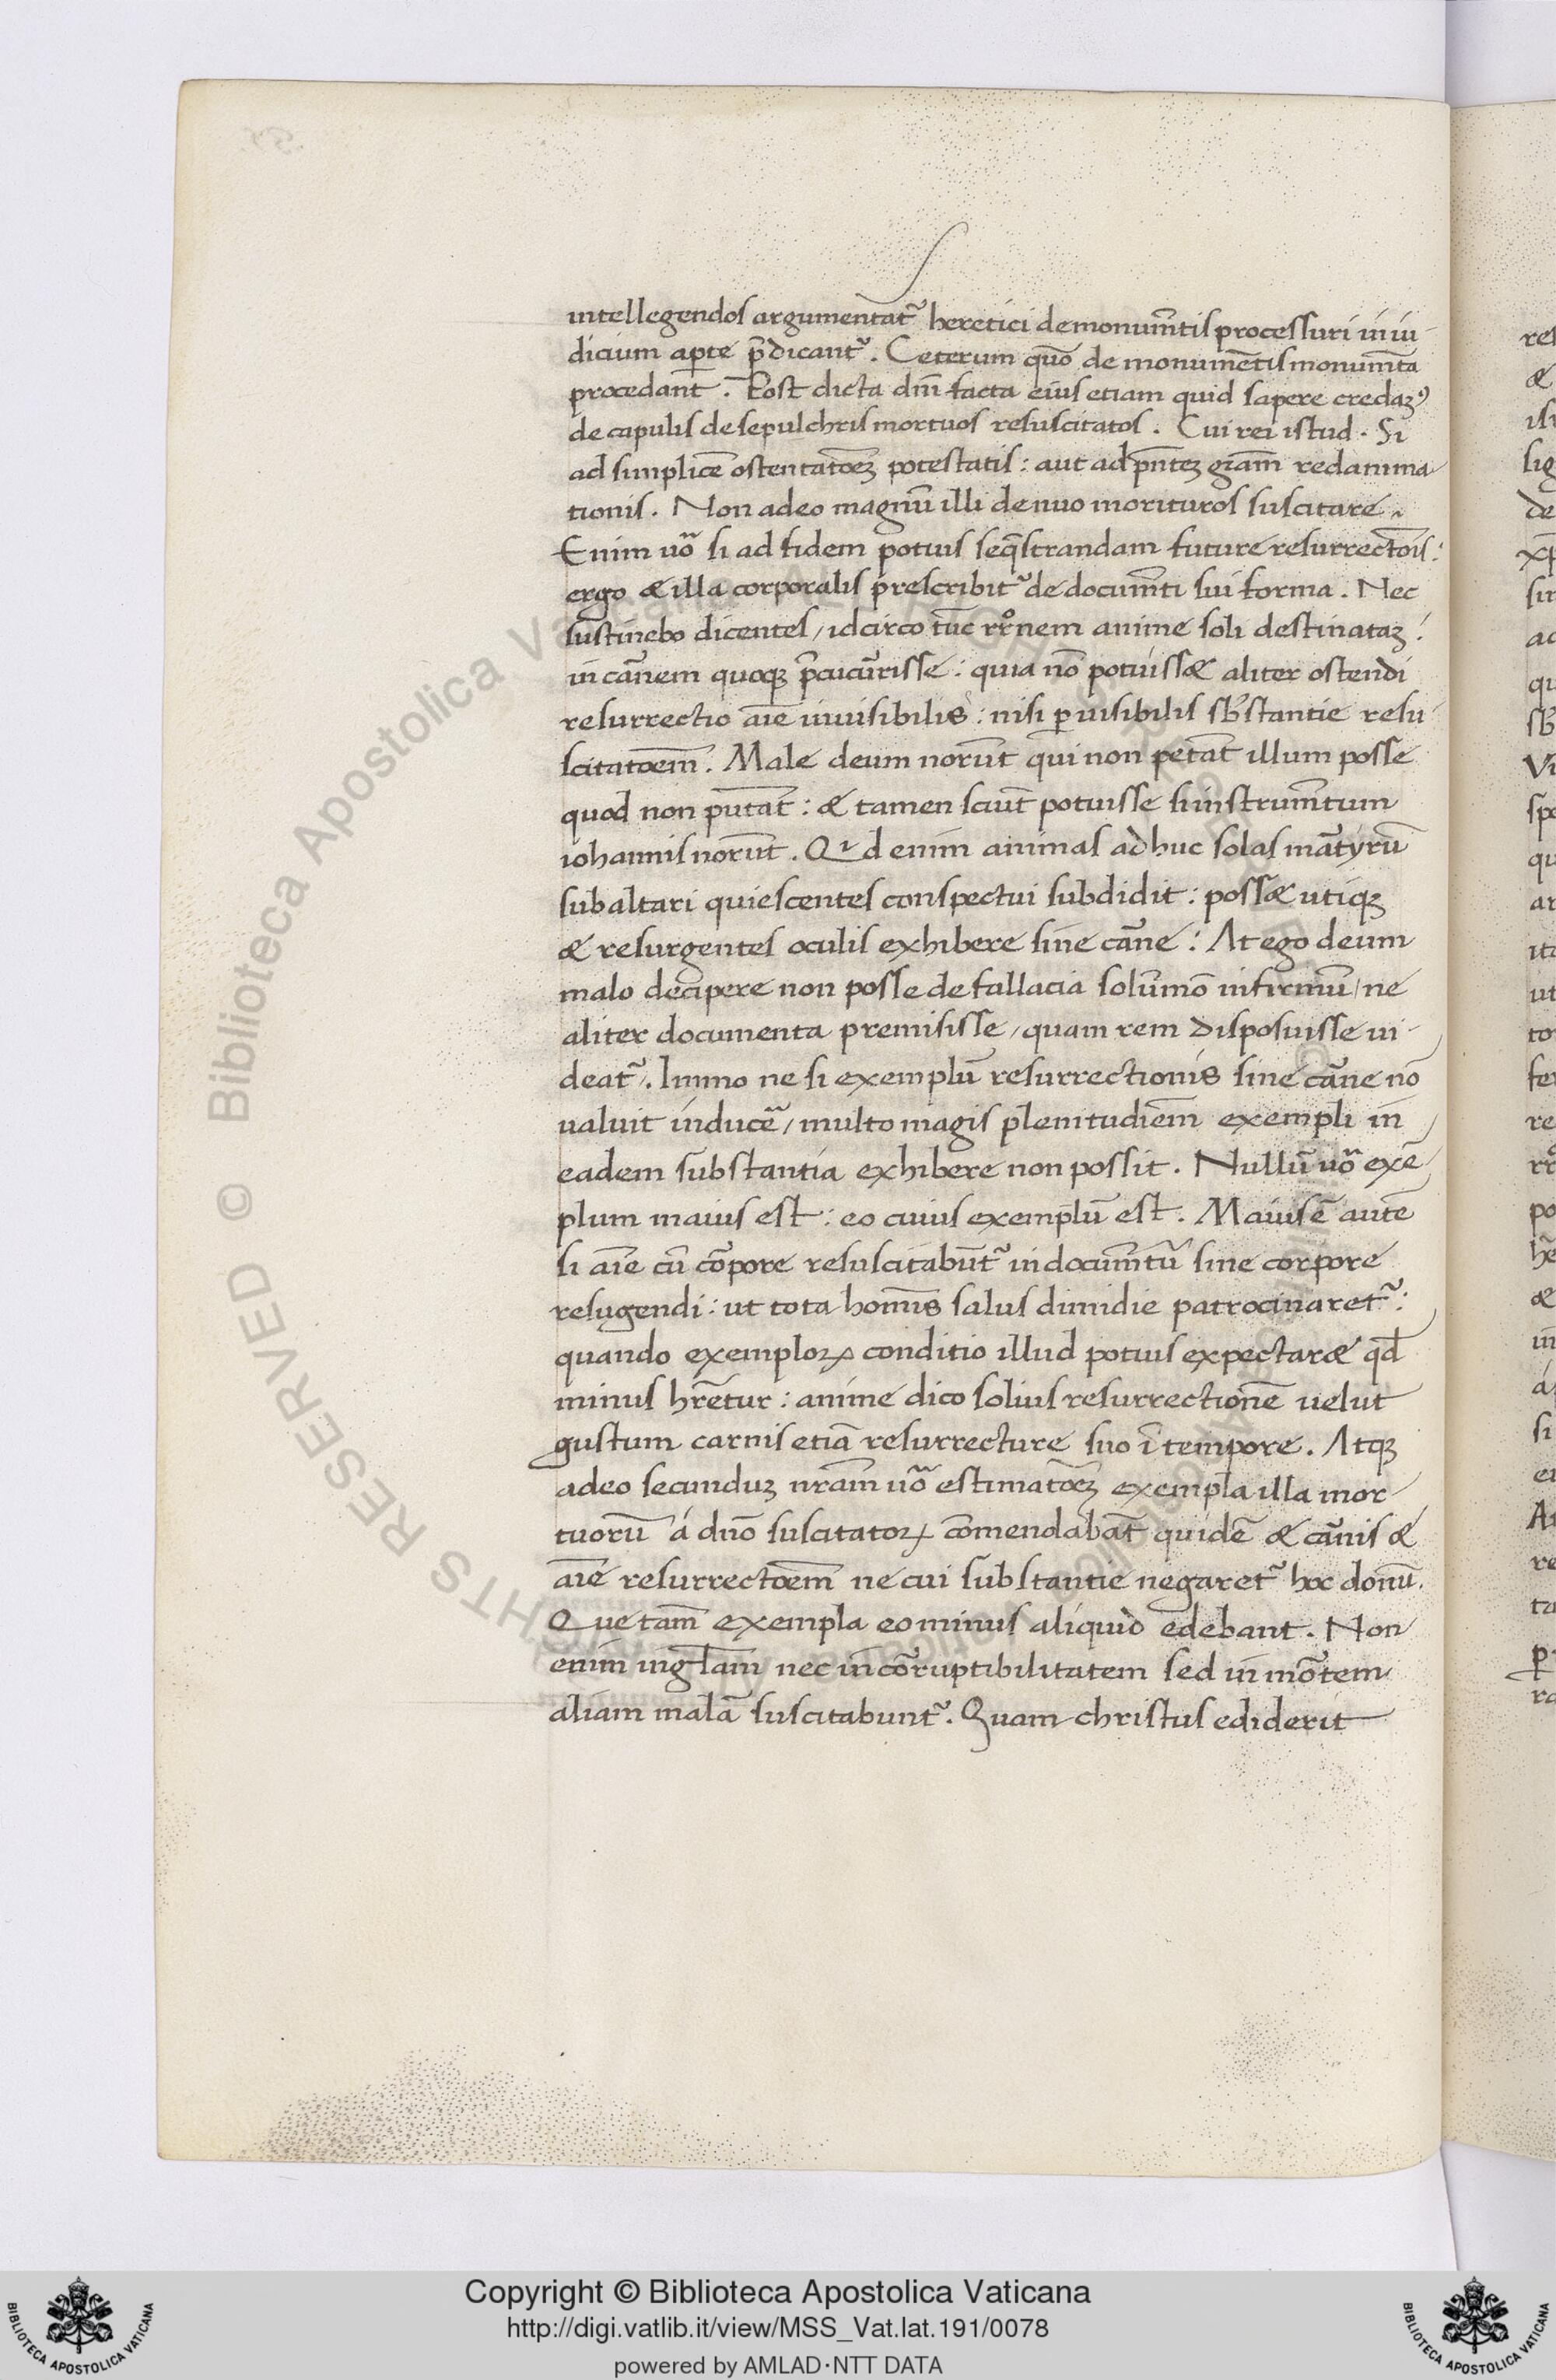 intellegendos argumentat᷑ heretici de monum̅tis processuri in iu
dicium aꝑte p̅dicant᷑. Ceterum quō de monumētis monum̅ta
procedant̅. Post dicta dn̄i facta eius etiam quid sapere credaꝫ
de capulis de sepulchris mortuos resuscitatos. Cui rei istud. Si
ad simplicē ostentatōeꝫ potestatis: aut ad p̅nteꝫ gr̅am redanima
tionis. Non adeo magnū illi denuo morituros suscitare.
Enim uō si ad fidem potius seq̅strandam future resurrectōis:
ergo & illa corporalis prescribit᷑ de docum̅ti sui forma. Nec
sustinebo dicentes / idcirco tūc rr̊nem anime soli destinataꝫ:
in car̅nem quoqꝫ p̅cucur̅risse: quia nō potuiss& aliter ostendi
resurrectio aīe inuisibilis: nisi ꝑ uisibilis sb̅stantie resu
scitatōem̅. Male deum norūt qui non petāt illum posse
quod non putāt: & tamen sciūt potuisse si instrum̅tum
iohannis norūt. Qui d enim animas adhuc solas mar̅tyrū
sub altari quiescentes conspectui subdidit: poss& utiqꝫ
& resurgentes oculis exhibere sine ca̅ne: At ego deum
malo decipere non posse de fallacia solūmō infirmū / ne
aliter documenta premisisse / quam rem disposuisse ui
deat᷑. Immo ne si exemplū resurrectionis sine ca̅ne nō
ualuit inducē / multo magis plenitudiem̅ exempli in
eadem substantia exhibere non possit. Nullū uō exē
plum maius est: eo cuius exemplū est. Maius ē autē
si aīe cū co̅pore resuscitabūt᷑ in docum̅tū sine corpore
resugendi: ut tota homīs salus dimidie patrocinaret᷑:
quando exemploꝝ conditio illud potius expectar& qd̅
minus hr̅etur: anime dico solius resurrectionē uelut
gustum carnis etiā resurrecture suo ī tempore. Atqꝫ
adeo secunduꝫ nr̅am uō estimatōeꝫ exempla illa mor
tuorū á dn̄o suscitatoꝝ comendabāt quidē & ca̅nis &
aīe resurrectōem̅ ne cui substantie negaret᷑ hoc donū.
Que tam̅ exempla eo minus aliquid edebant. Non
enim in gl̅am nec in cor̅ruptibilitatem sed in mo̅tem
aliam malā suscitabunt᷑. Quam christus ediderit
Copyright © Biblioteca Apostolica Vaticana
http://digi.vatlib.it/view/MSS_Vat.lat.191/0078
powered by AMLAD·NTT DATA